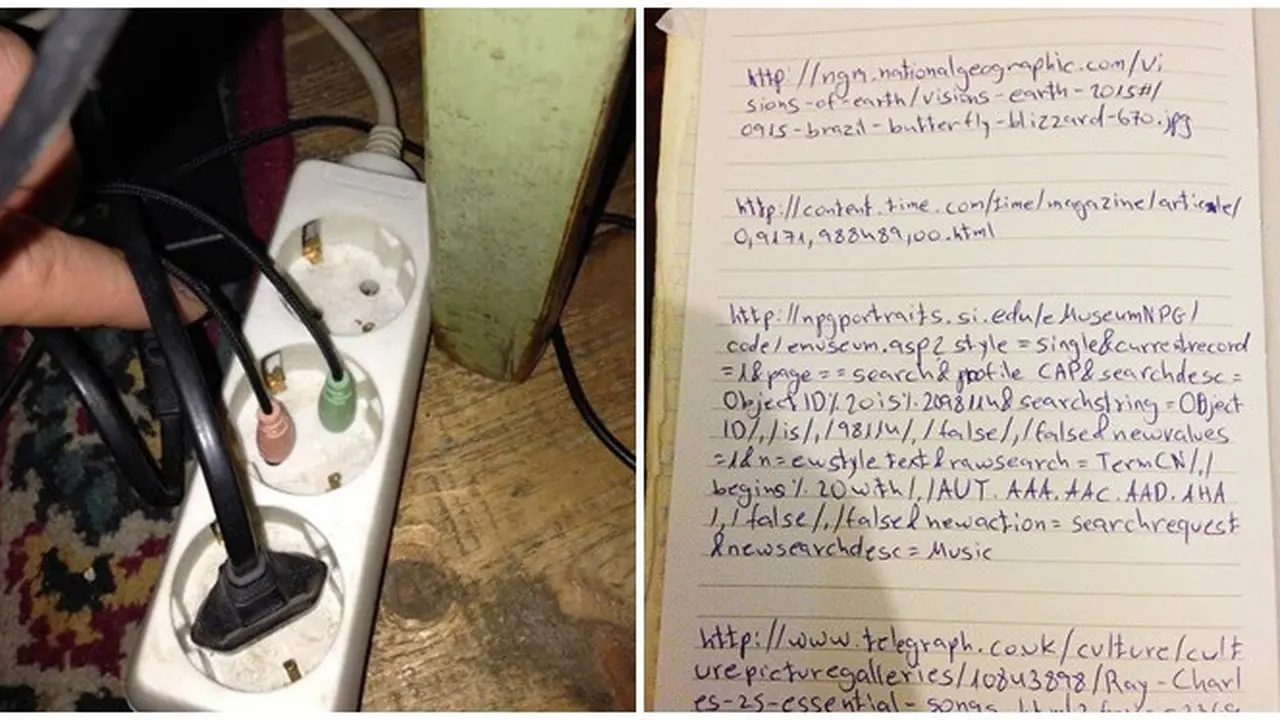 http://ngm.nationalgeographic.com/vi
sions-of-earth/visions-earth-2015#/
0915-brazil-butterfly-blizzard-670.jpg
http://content.time.com/time/magazine/article/
0,9171,988489,00.html
http://npgportraits.si.edu/eMuseumNPG/
code/emuseum.asp?style=single&currentrecord
=1&page==search&profile CAP&searchdesc=
Object ID%20is%209811u&searchstring=OBject
ID/,/is/,/9811u/,/false/,/false&newvalues
=1&n=ewstyle text&rawsearch=TermCN/,/
begins%20with/,/AUT.AAA.AAC.AAD.AHA
/,/false/,/false&newaction=searchrequest
&newsearchdesc=Music
http://www.telegraph.co.uk/culture/cult
urepicturegalleries/10843898/Ray-Charl
es-25-essential-songs.html?